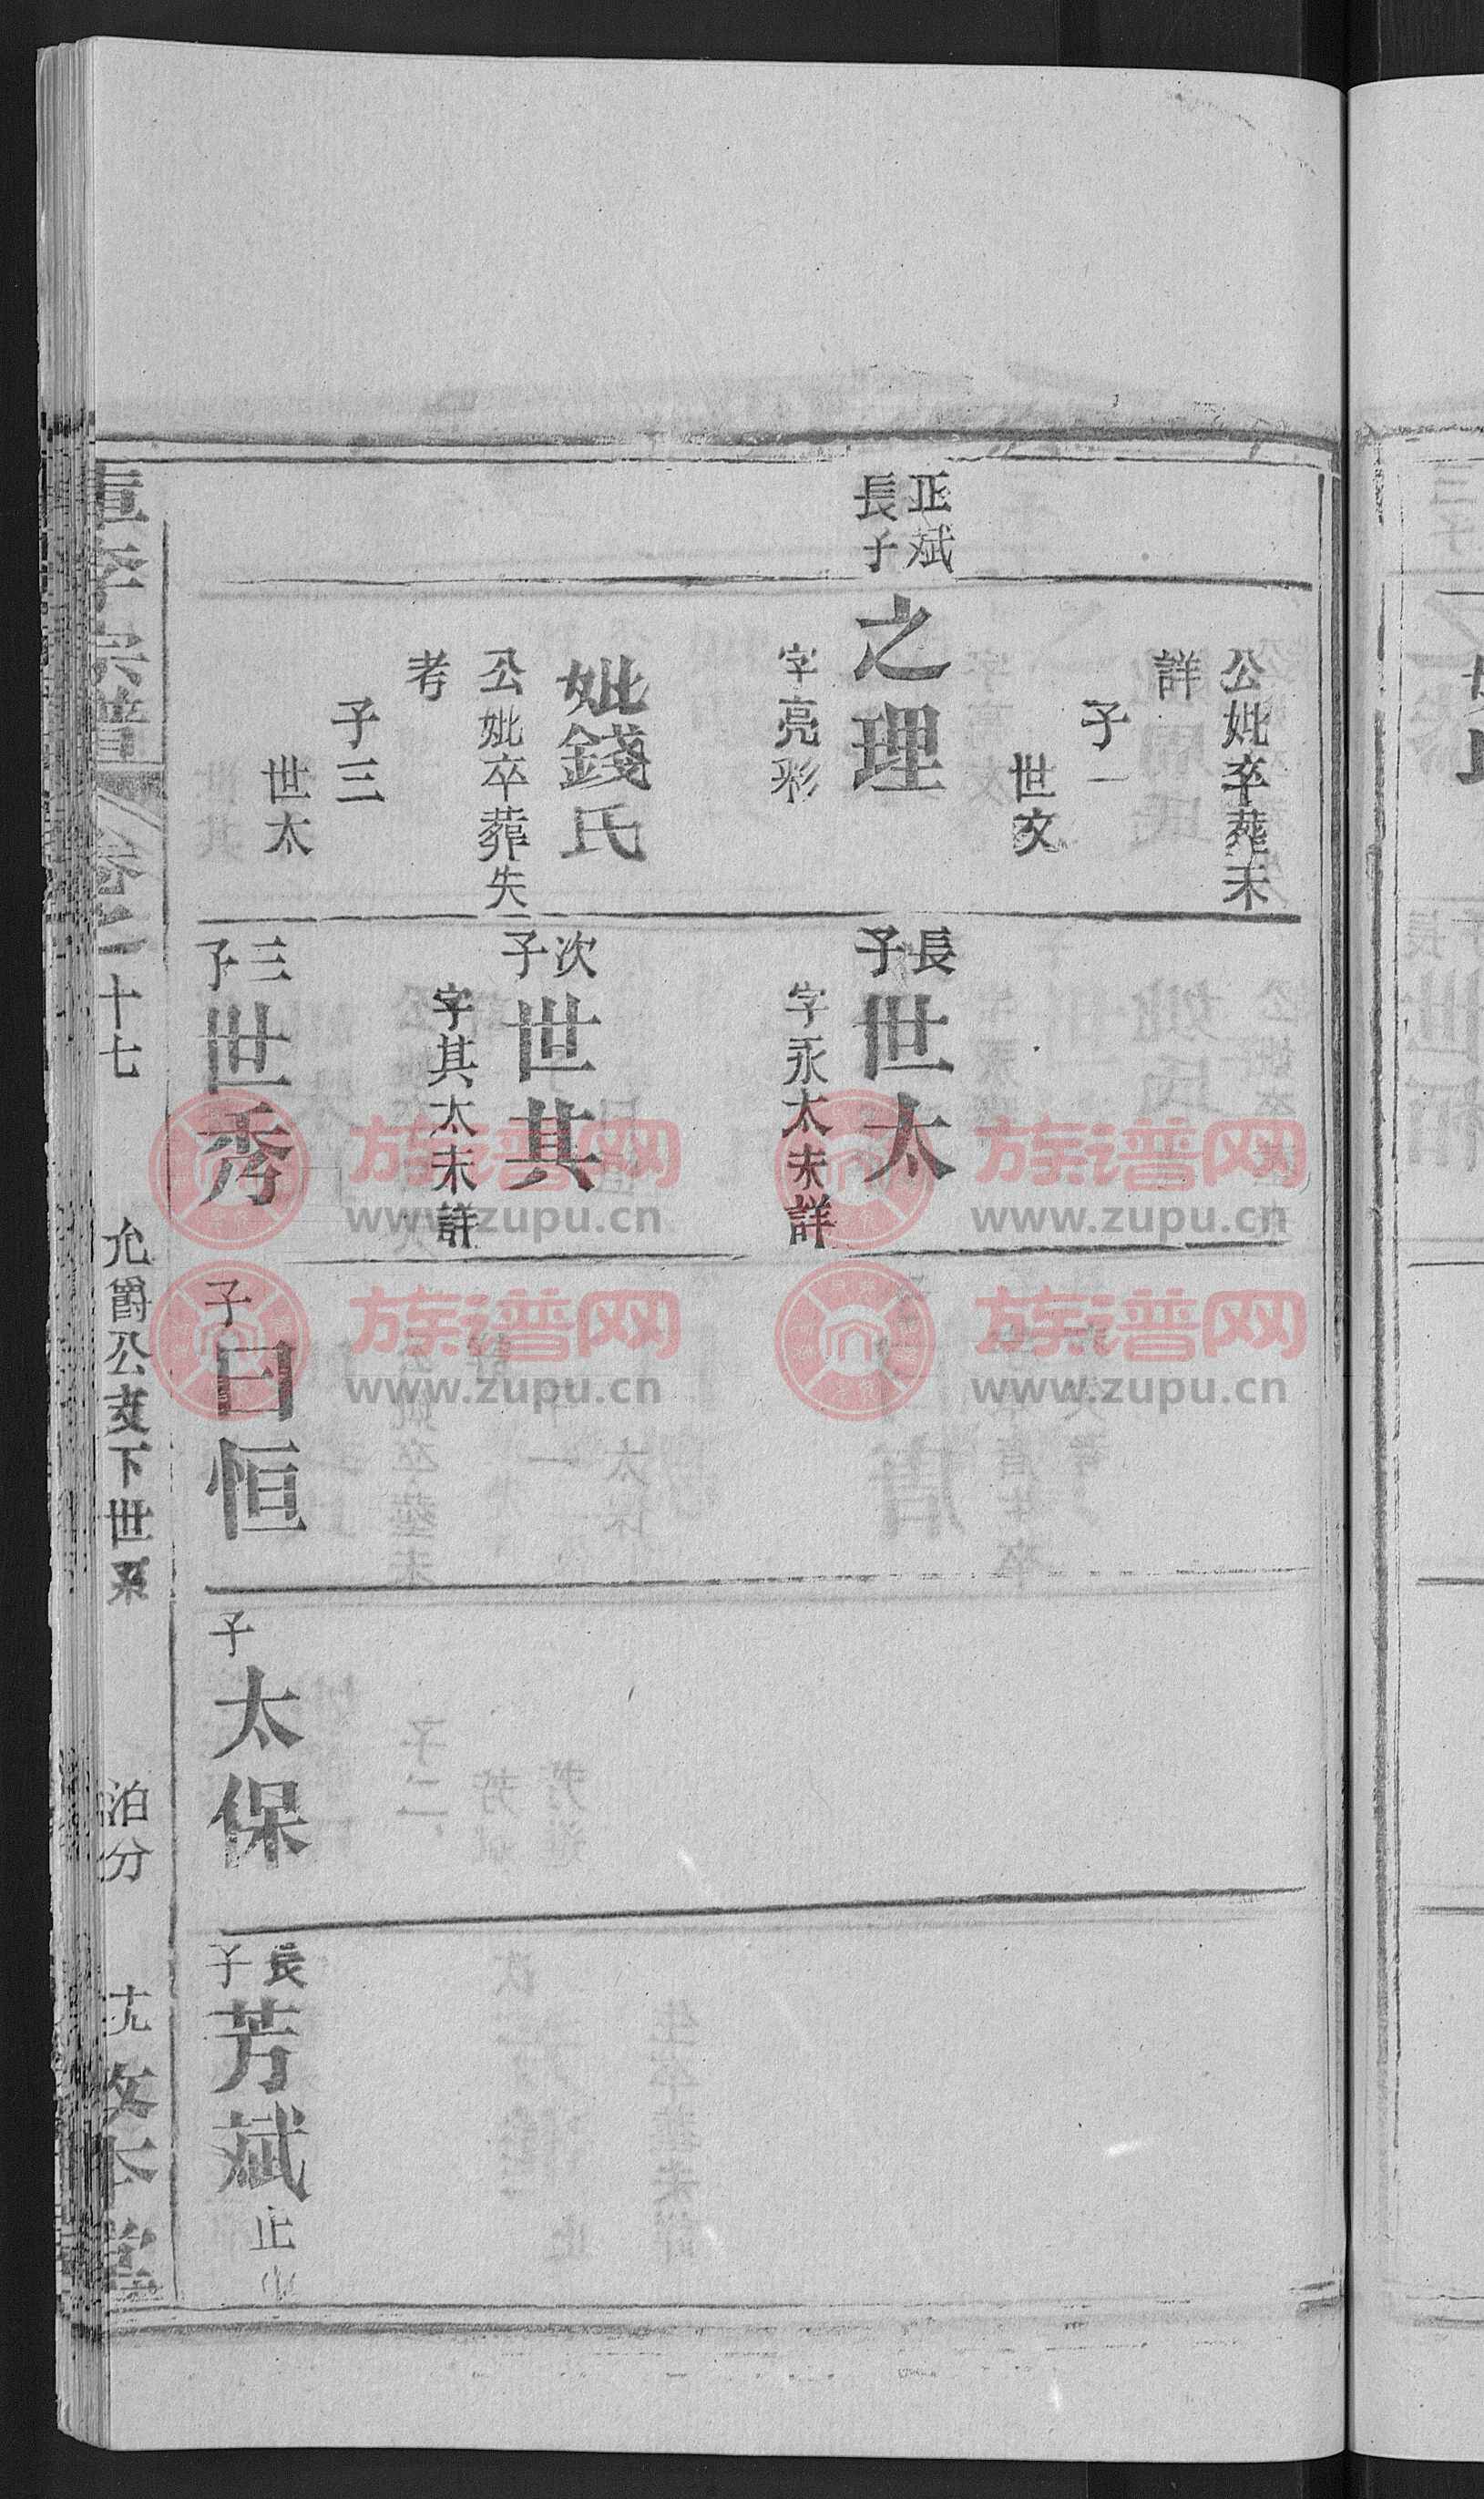 公妣卒葬未
詳
子一
世文
正斌
長子
之理
字亮彩
妣錢氏
公妣卒葬失
考
子三
世太
長子
世太
字永太未詳
次子
世其
字其太未詳
三子
世秀
子
日恒
子
太保
長子
芳斌
止
宗譜
卷之二十七
允爵公支下世系
泊分
敦本堂
族谱网
www.zupu.cn
族谱网
www.zupu.cn
族谱网
www.zupu.cn
族谱网
www.zupu.cn